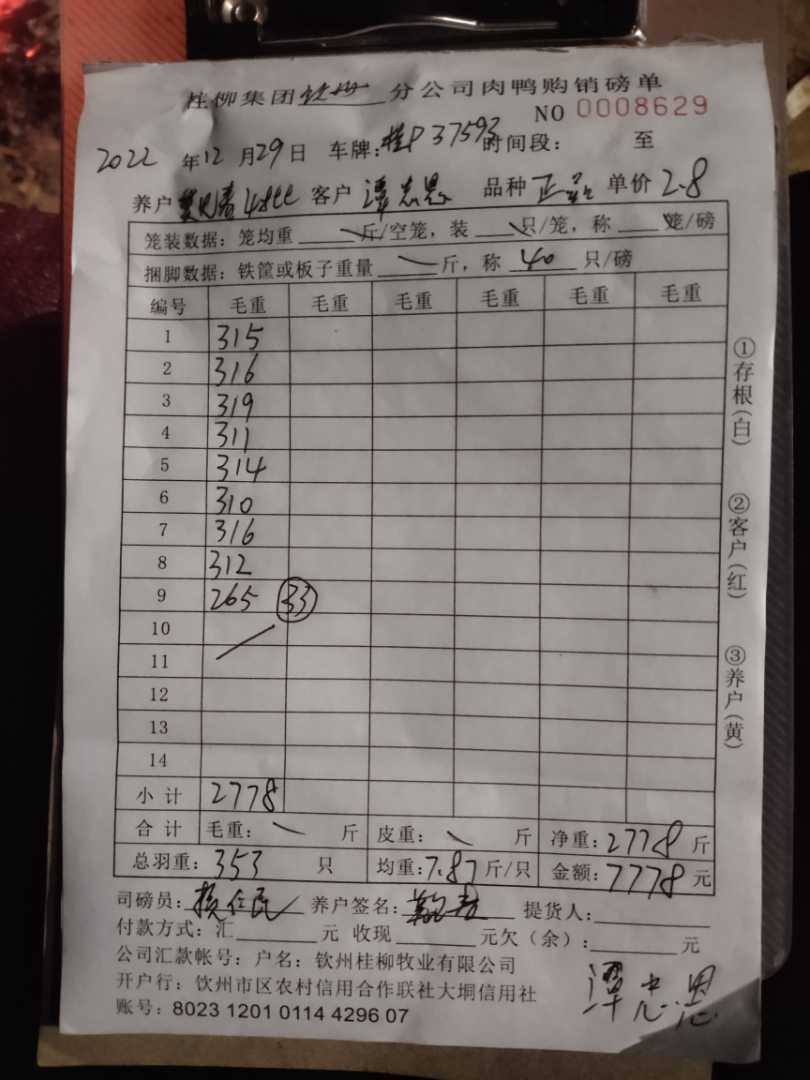 桂柳集团钦州分公司肉鸭购销磅单
NO 0008629
2022年12月29日 车牌:桂P37593 时间段: 至
养户 客户 谭忠恩 品种 正 单价 2.8
笼装数据: 笼均重 斤/空笼, 装 只/笼, 称 笼/磅
捆脚数据: 铁筐或板子重量 斤, 称 40 只/磅
编号 毛重 毛重 毛重 毛重 毛重 毛重
1 315
2 316
3 319
4 311
5 314
6 310
7 316
8 312
9 265 33
10
11
12
13
14
小计 2778
合计 毛重: 斤 皮重: 斤 净重: 2778 斤
总羽重: 353 只 均重: 7.87 斤/只 金额: 7778 元
司磅员: 养户签名: 提货人:
付款方式: 汇 元 收现 元欠(余): 元
公司汇款帐号: 户名: 钦州桂柳牧业有限公司
开户行: 钦州市区农村信用合作联社大垌信用社
账号: 8023 1201 0114 4296 07
谭忠恩
①存根(白)
②客户(红)
③养户(黄)